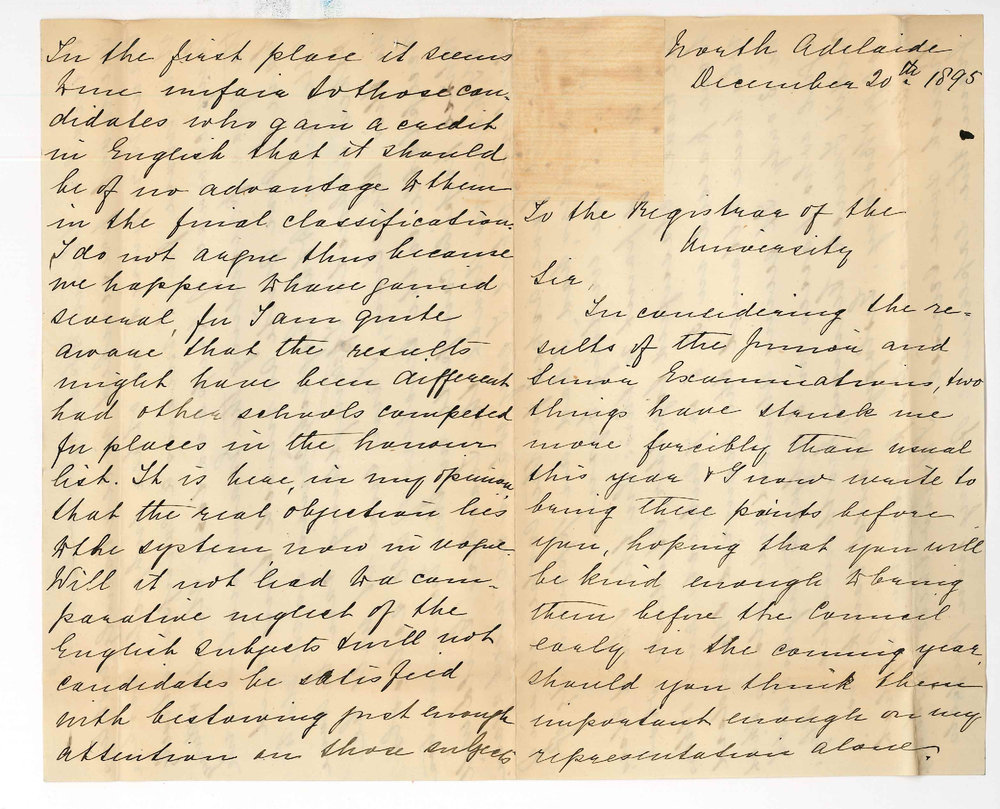 North Adelaide
December 20th 1895
To the Registrar of the
University
Sir,
In considering the re-
sults of the Junior and
Senior Examinations, two
things have struck me
more forcibly than usual
this year & I now write to
bring these points before
you, hoping that you will
be kind enough to bring
them before the Council
early in the coming year,
should you think them
important enough on my
representation alone.
In the first place it seems
to me unfair to those can-
didates who gain a credit
in English that it should
be of no advantage to them
in the final classification.
I do not argue thus because
we happen to have gained
several, for I am quite
aware that the results
might have been different
had other schools competed
for places in the honour
list. It is here, in my opinion
that the real objection lies
to the system now in vogue.
Will it not lead to a com-
parative neglect of the
English subjects & will not
candidates be satisfied
with bestowing just enough
attention on those subjects